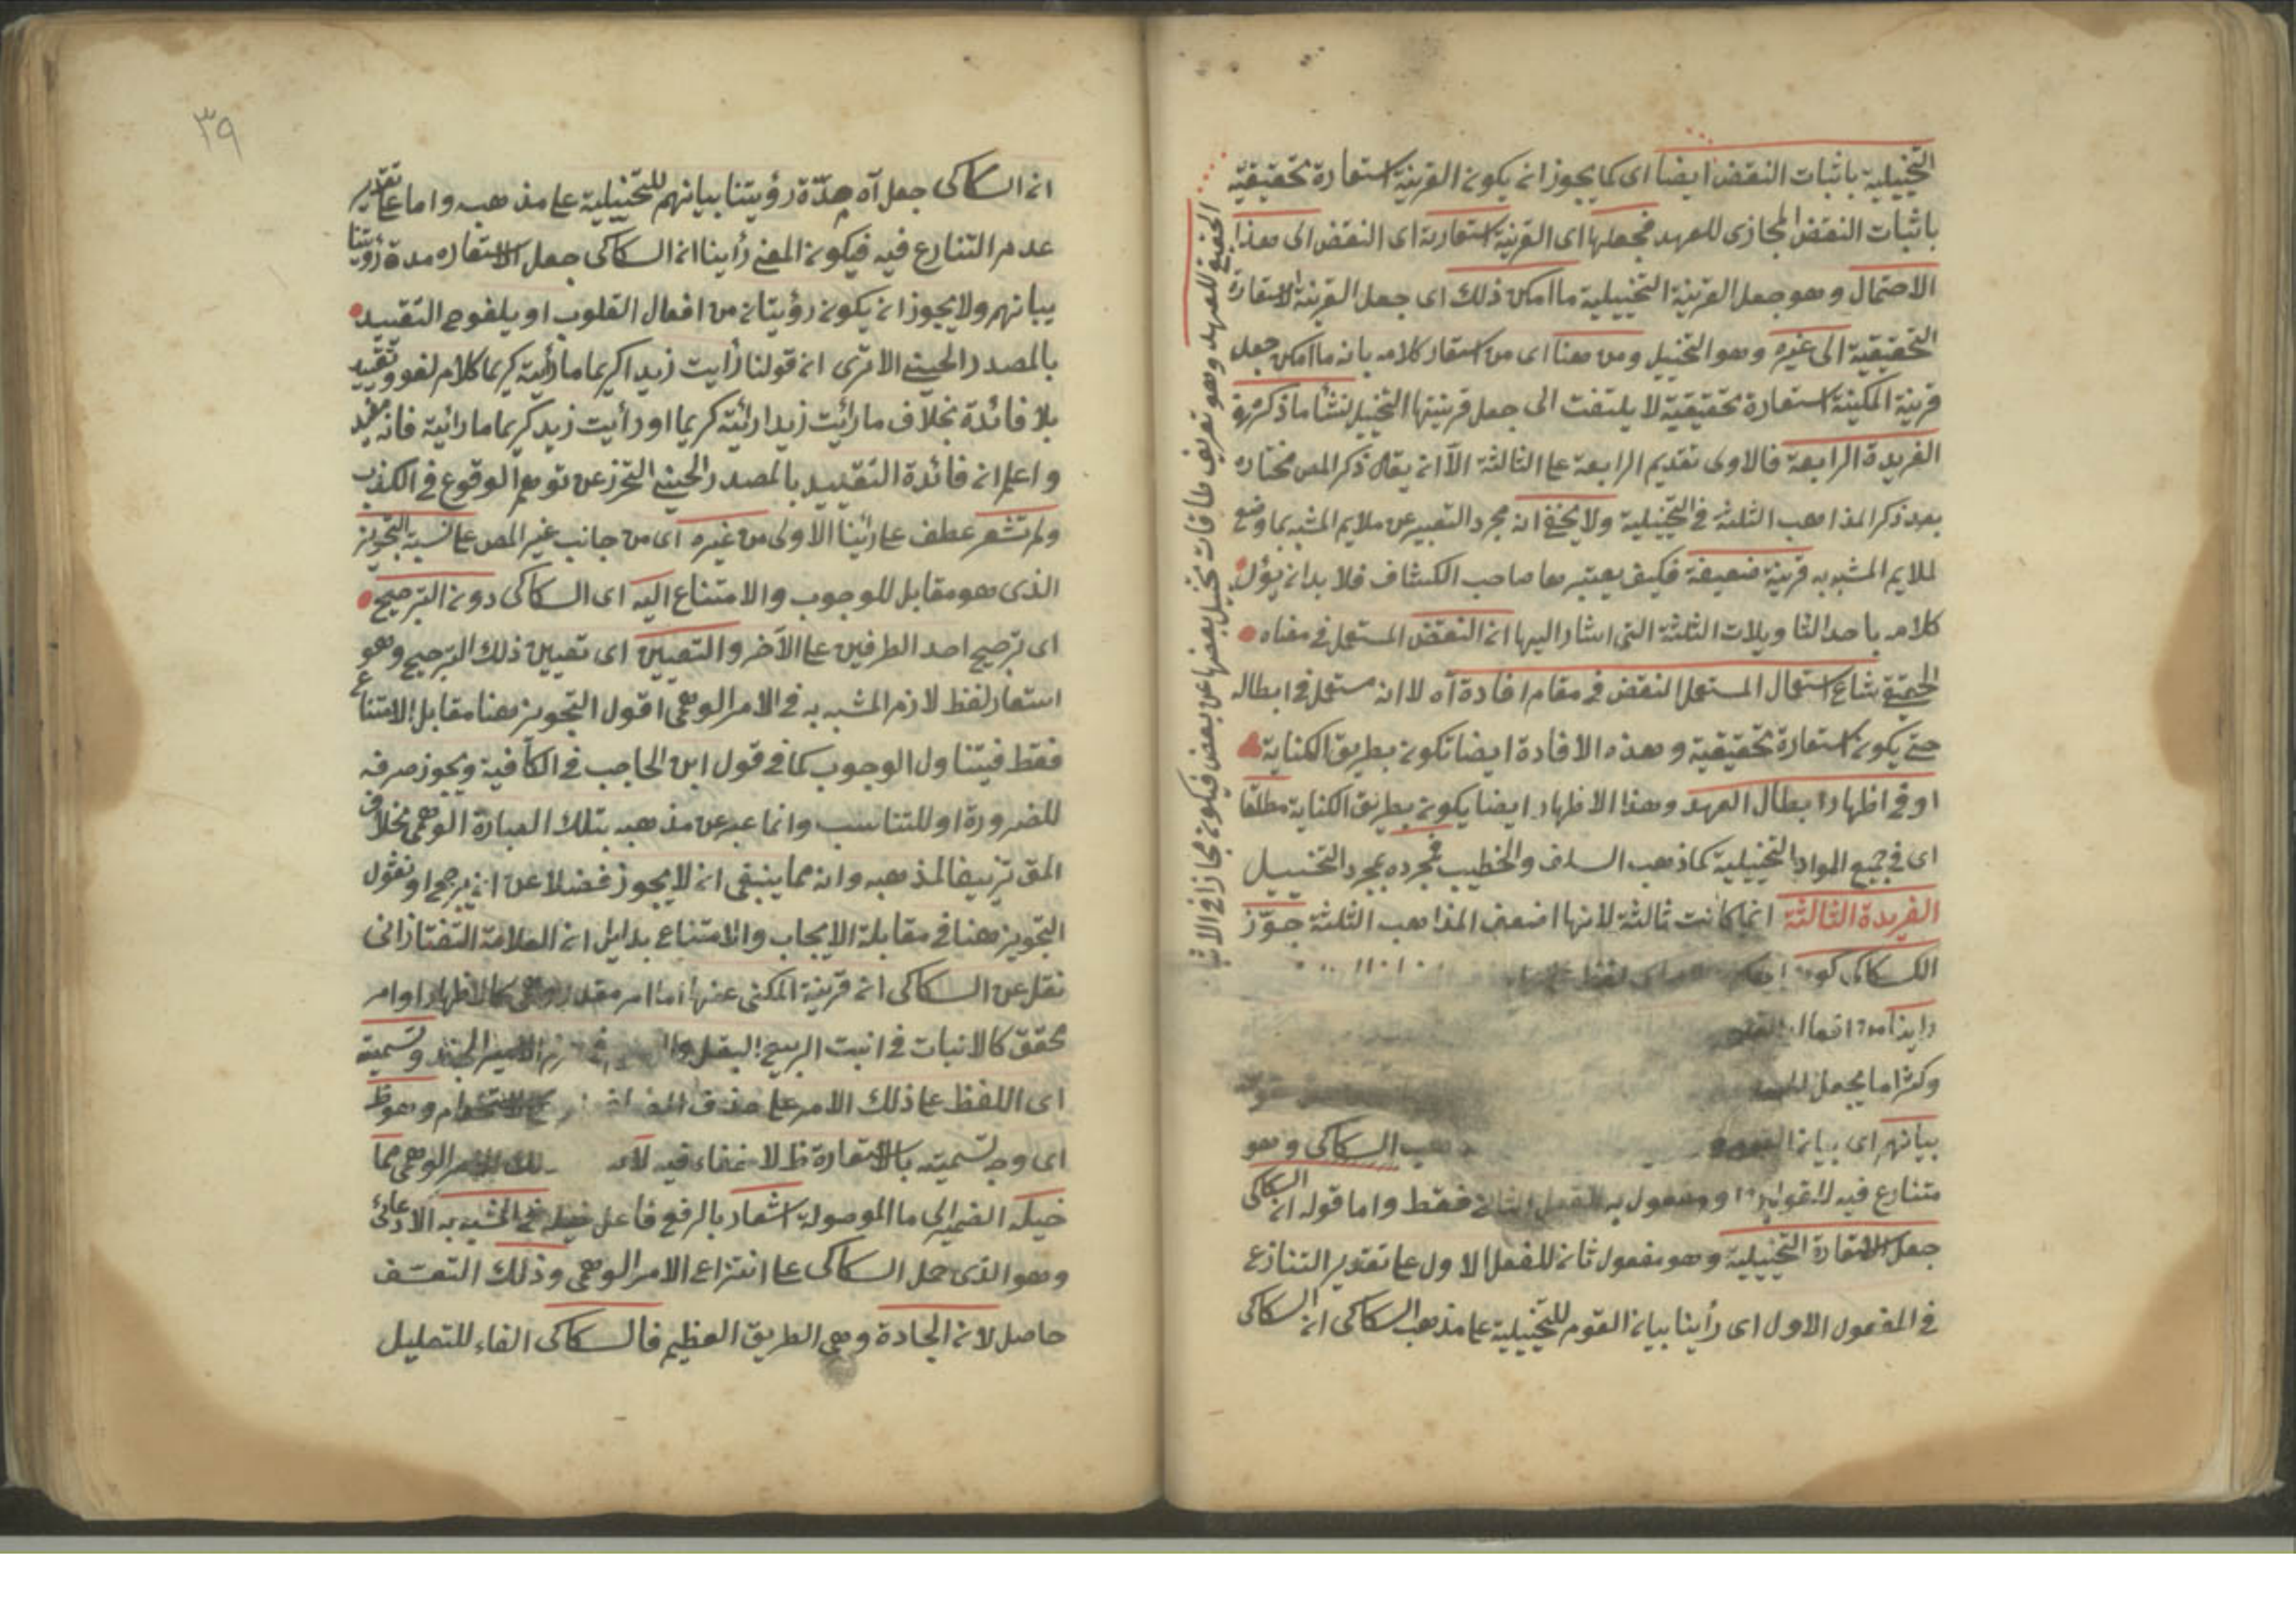 التخييلية باثبات النقض ايضا اى كما يجوز ان يكون القرينة استعارة تحقيقية
باثبات النقض المجازى للعهد فجعلها اى القرينة استعارية اى النقض الى هذا
الاحتمال وهو جعل القرينة التخييلية ما امكن ذلك اى جعل القرينة الاستعارة
التحقيقية الى غيره وهو التخييل ومن هنا اى من استعار كلامه بانه ما امكن جعل
قرينة المكنية استعارة تحقيقية لا يلتفت الى جعل قرينتها التخييل نشأ ما ذكر فى
الفريدة الرابعة فالاولى تقديم الرابعة على الثالثة الا ان يقال ذكر المص مختاره
بعد ذكر المذاهب الثلثة فى التخييلية ولا يخفى ان مجرد التعبير عن ملايم المشبه بما وضع
لملايم المشبه به قرينة ضعيفة فكيف يعتبرها صاحب الكشاف فلا بد ان يؤل
كلامه باحد التاويلات الثلثة التى اشار اليها ان النقض المستعمل فى معناه
الحقيقى شاع استعمال المستعمل النقض فى مقام افادة آه لا ان مستعمل فى ابطاله
حتى يكون استعارة تحقيقية وهذه الافادة ايضا تكون بطريق الكناية
او فى اظهار ابطال العهد وهذا الاظهار ايضا يكون بطريق الكناية مطلقا
اى فى جميع المواد التخييلية كما ذهب السلف والخطيب فجرده بمجرد التخييل
الفريدة الثالثة انما كانت ثالثة لانها اضعف المذاهب الثلثة جوّز
السكاكى كون
راينا من افعال
وكثرا ما يجعل
بيانهم اى بيان السكاكى وهو
متنازع فيه ومفعول به للفعل الثانى فقط واما قوله ان السكاكى
جعل الاستعارة التخييلية وهو مفعول ثان للفعل الاول على تقدير التنازع
فى المفعول الاول اى رأينا بيان القوم للتخييلية على مذهب السكاكى ان السكاكى
الحقيقى للعهد وهو تعريف طاقات تخييل بعضها عن بعض فيكون مجازا فى الاثبا
٣٩
ان السكاكى جعل آه مدّة رؤيتنا بيانهم للتخييلية على مذهبه واما على تقدير
عدم التنازع فيه فيكون المعنى رأينا ان السكاكى جعل الاستعاره مدة رؤيتنا
بيانهم ولا يجوز ان يكون رؤيتان من افعال القلوب او يلغو ح التقييد
بالمصدر الحينى الا ترى ان قولنا رأيت زيدا كريما ما رأيته كريما كلام لغو وتقييد
بلا فائدة بخلاف ما رأيت زيدا رأيته كريما او رأيت زيد كريما ما رأيته فانه مفيد
واعلم ان فائدة التقييد بالمصدر الحينى التحرز عن توهم الوقوع فى الكذب
ولم تشعر عطف على رأينا الاولى من غيره اى من جانب غير المص على نسبة التجويز
الذى هو مقابل للوجوب والامتناع اليه اى السكاكى دون الترجيح
اى ترجيح احد الطرفين على الآخر والتعيين اى تعيين ذلك الترجيح وهو
استعار لفظ لازم المشبه به فى الامر الوهمى اقول التجويز هنا مقابل الامتناع
فقط فيتناول الوجوب كما فى قول ابن الحاجب فى الكافية ويجوز صرفه
للضرورة او للتناسب وانما عبر عن مذهبه بتلك العبارة الوهمى بخلاف
المق تزييفا لمذهبه وانه مما ينبغى ان لا يجوز فضلا عن ان يرجح او نقول
التجويز هنا فى مقابلة الايجاب والامتناع بدليل ان العلامة التفتازانى
نقل عن السكاكى ان قرينة المكنى عنها اما امر مقدر وهمى كالاظهار او امر
محقق كالانبات فى انبت الربيع البقل وال فى هزم الامير الجند وتسمية
اى اللفظ على ذلك الامر على حذف المضاف وهو ظ
اى وجه تسميته بالاستعارة ظ لا خفاء فيه لانه الامر الوهمى مما
خيله الضمير الى ما الموصولة اشعار بالرفع فاعل المشبه به الادعائى
وهو الذى حمل السكاكى على انتزاع الامر الوهمى وذلك التعسّف
حاصل لان الجادة وهى الطريق العظيم فالسكاكى الفاء للتعليل